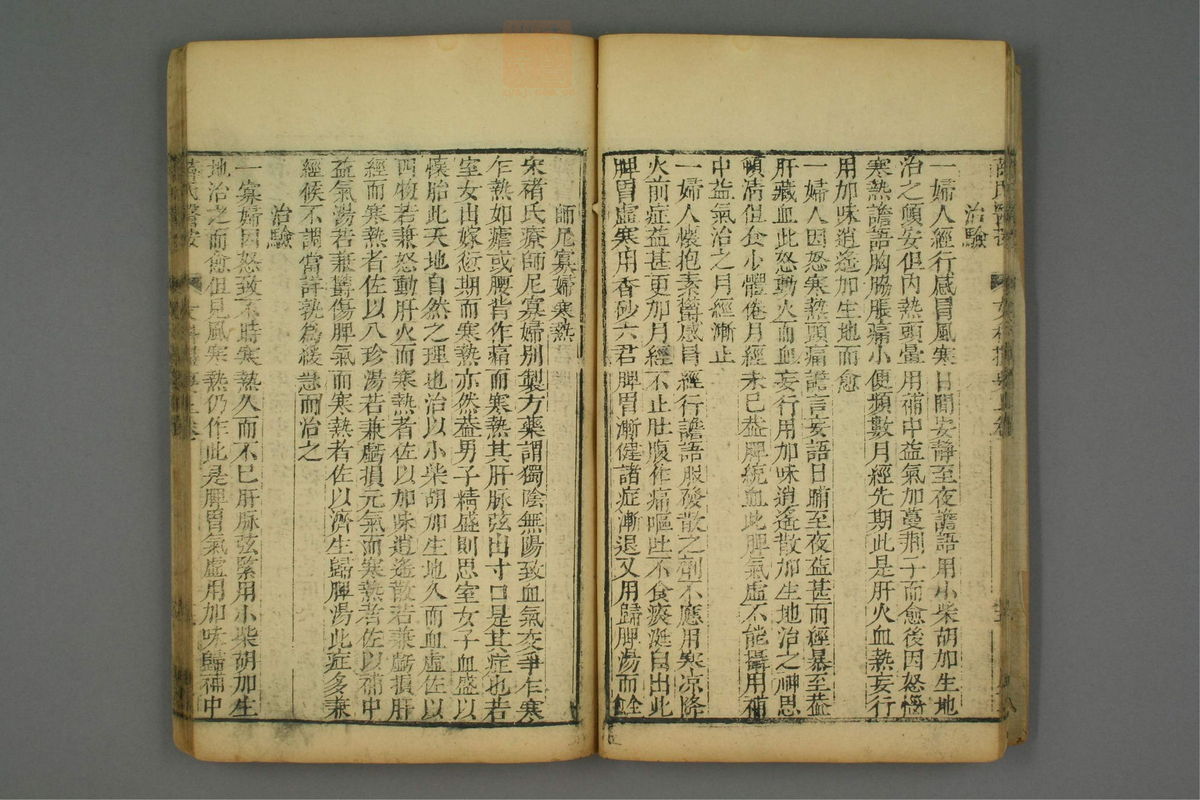 治驗
一婦人經行感冒風寒日間安靜至夜譫語用小柴胡加生地
治之頓安但內熱頭暈用補中益氣加蔓荆子而愈後因怒惱
寒熱譫語胸脇脹痛小便頻數月經先期此是肝火血熱妄行
用加味逍遙加生地而愈
一婦人因怒寒熱頭痛譫言妄語日晡至夜益甚而經暴至蓋
肝藏血此怒動火而血妄行用加味逍遙散加生地治之神思
頓清但食少體倦月經未已蓋脾統血此脾氣虛不能攝用補
中益氣治之月經漸止
一婦人懷抱素鬱感冒經行譫語服發散之劑不應用寒凉降
火前症益甚更加月經不止肚腹作痛嘔吐不食痰涎自出此
脾胃虛寒用香砂六君脾胃漸健諸症漸退又用歸脾湯而全
師尼寡婦寒熱
宋褚氏療師尼寡婦別製方藥謂獨陰無陽致血氣交爭乍寒
乍熱如瘧或腰背作痛而寒熱其肝脉弦出寸口是其症也若
室女出嫁衍期而寒熱亦然蓋男子精盛則思室女子血盛以
懷胎此天地自然之理也治以小柴胡加生地久而血虛佐以
四物若兼怒動肝火而寒熱者佐以加味逍遙散若兼虧損肝
經而寒熱者佐以八珍湯若兼虧損元氣而寒熱者佐以補中
益氣湯若兼鬱傷脾氣而寒熱者佐以濟生歸脾湯此症多兼
經候不調當詳孰為緩急而治之
治驗
一寡婦因怒致不時寒熱久而不已肝脉弦緊用小柴胡加生
地治之而愈但見風寒熱仍作此是脾胃氣虛用加味歸補中
薛氏醫案